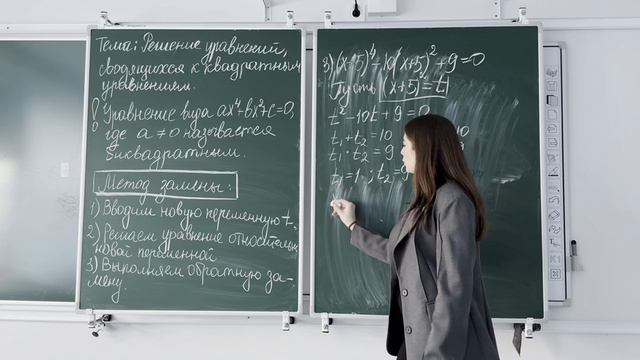 Тема: Решение уравнений,
сводящихся к квадратным
уравнениям.
! Уравнение вида ax⁴+bx²+c=0,
где a ≠ 0 называется
биквадратным.
Метод замены:
1) Вводим новую переменную t
2) Решаем уравнение относительно
новой переменной
3) Выполняем обратную за-
мену.
3) (x+5)⁴-10(x+5)²+9=0
Пусть (x+5)²=t
t²-10t+9=0
t₁+t₂=10
t₁·t₂=9
t₁=1; t₂=9